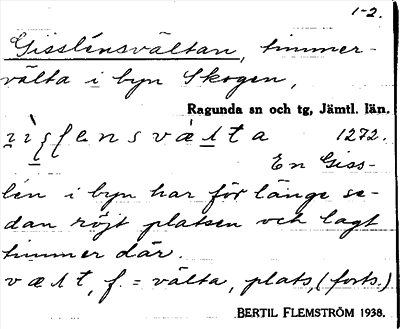 1-2.
Gisslénsvältan, timmer-
välta i byn Skogen,
Ragunda sn och tg, Jämtl. län.
1272.
En Giss-
lén i byn har för länge se-
dan röjt platsen och lagt
timmer där.
f. = välta, plats, (forts.)
BERTIL FLEMSTRÖM 1938.